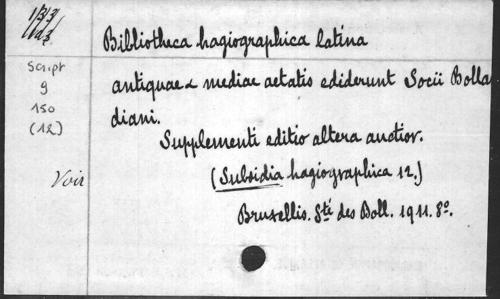 Bibliotheca hagiographica latina
antiquae & mediae aetatis ediderunt Socii Bolla
diani.
Supplementi editio altera auctior.
(Subsidia hagiographica 12.)
Bruxellis. Sté des Boll. 1911. 8º.
Script
9
150
(12)
Voir